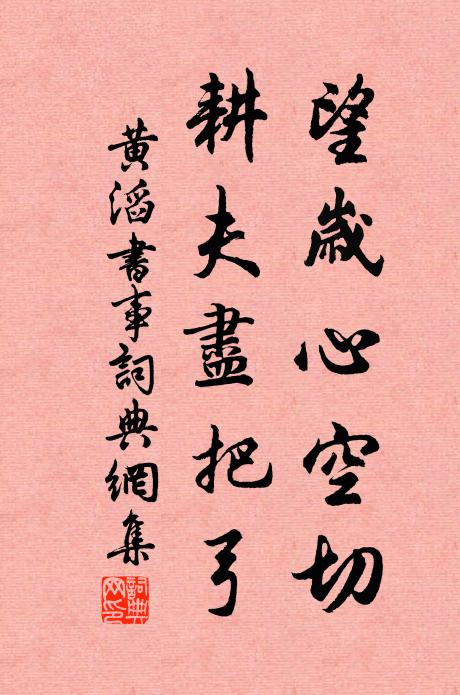 望歲心空切
耕夫盡把弓
黃滔書事詞典網集
詞典網印